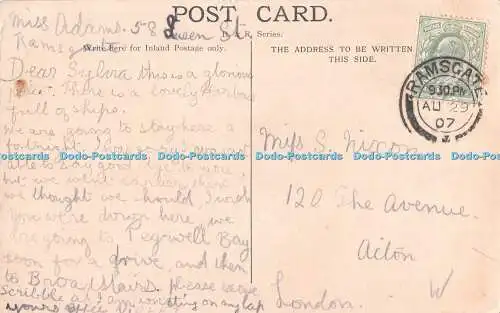 POST CARD.
Miss Adams. 58 Queen St
Ramsgate
Series.
Write here for Inland Postage only.
THE ADDRESS TO BE WRITTEN
THIS SIDE.
Dear Sylvia this is a glorious
place. There is a lovely harbour
full of ships.
We are going to stay here a
fortnight.
able to
but we
we thought we should, I wish
you were down here, we
are going to Pegwell Bay
soon for a drive, and then
to Broadstairs. please excuse
scribble as I am writing on my lap
yours
RAMSGATE
9.30 PM
AU 29
07
Miss S. Nixon
120 The Avenue.
Acton
London. W
Dodo-Postcards Dodo-Postcards Dodo-Postcards Dodo-Postcards Dodo-Postcards